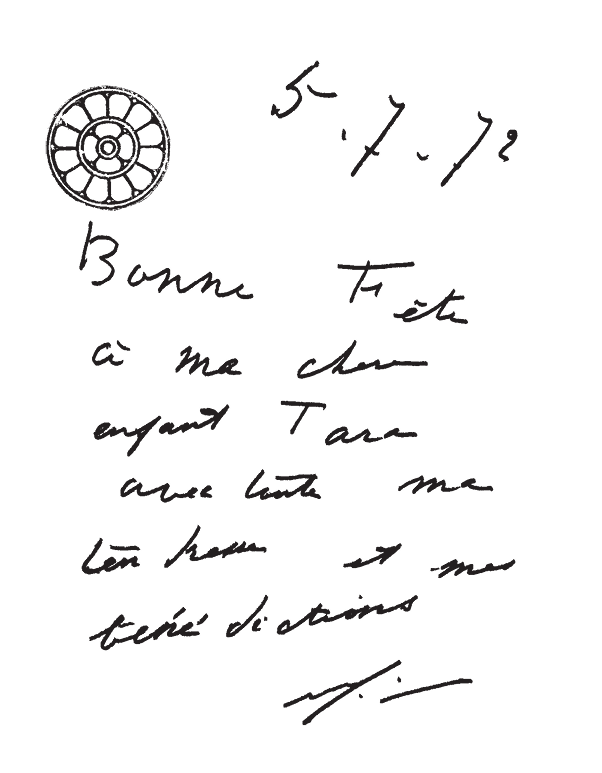 5.7.72
Bonne Fête
à ma chère
enfant Tara
avec toute ma
tendresse et mes
bénédictions